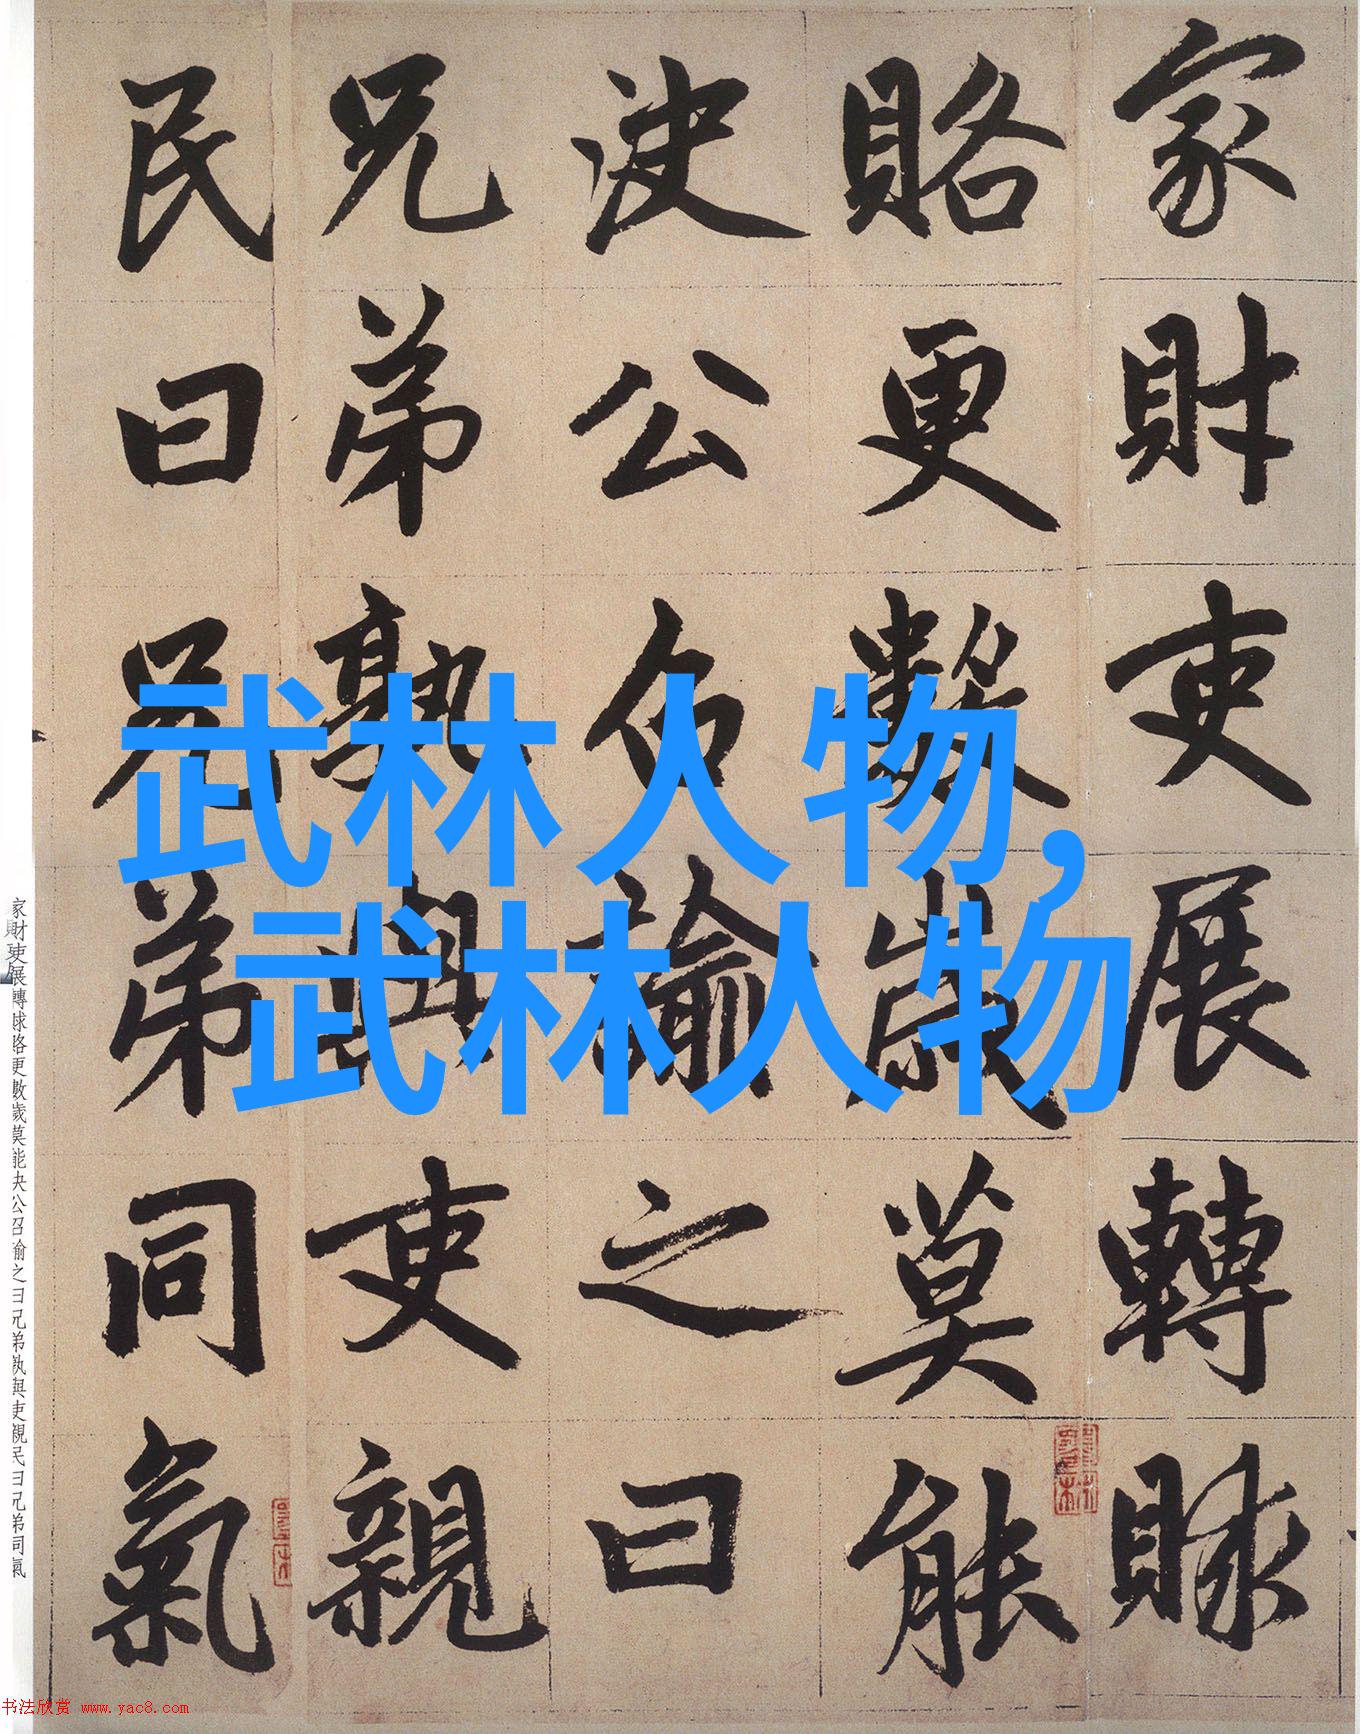 家財吏展轉賕
賂更數歲莫能
決公召諭之曰
兄弟孰與吏親
民曰兄弟同氣
武林人物,
武林人物
家財吏展轉賕賂更數歲莫能決公召諭之曰兄弟孰與吏親民曰兄弟同氣
书法欣赏 www.yac8.com